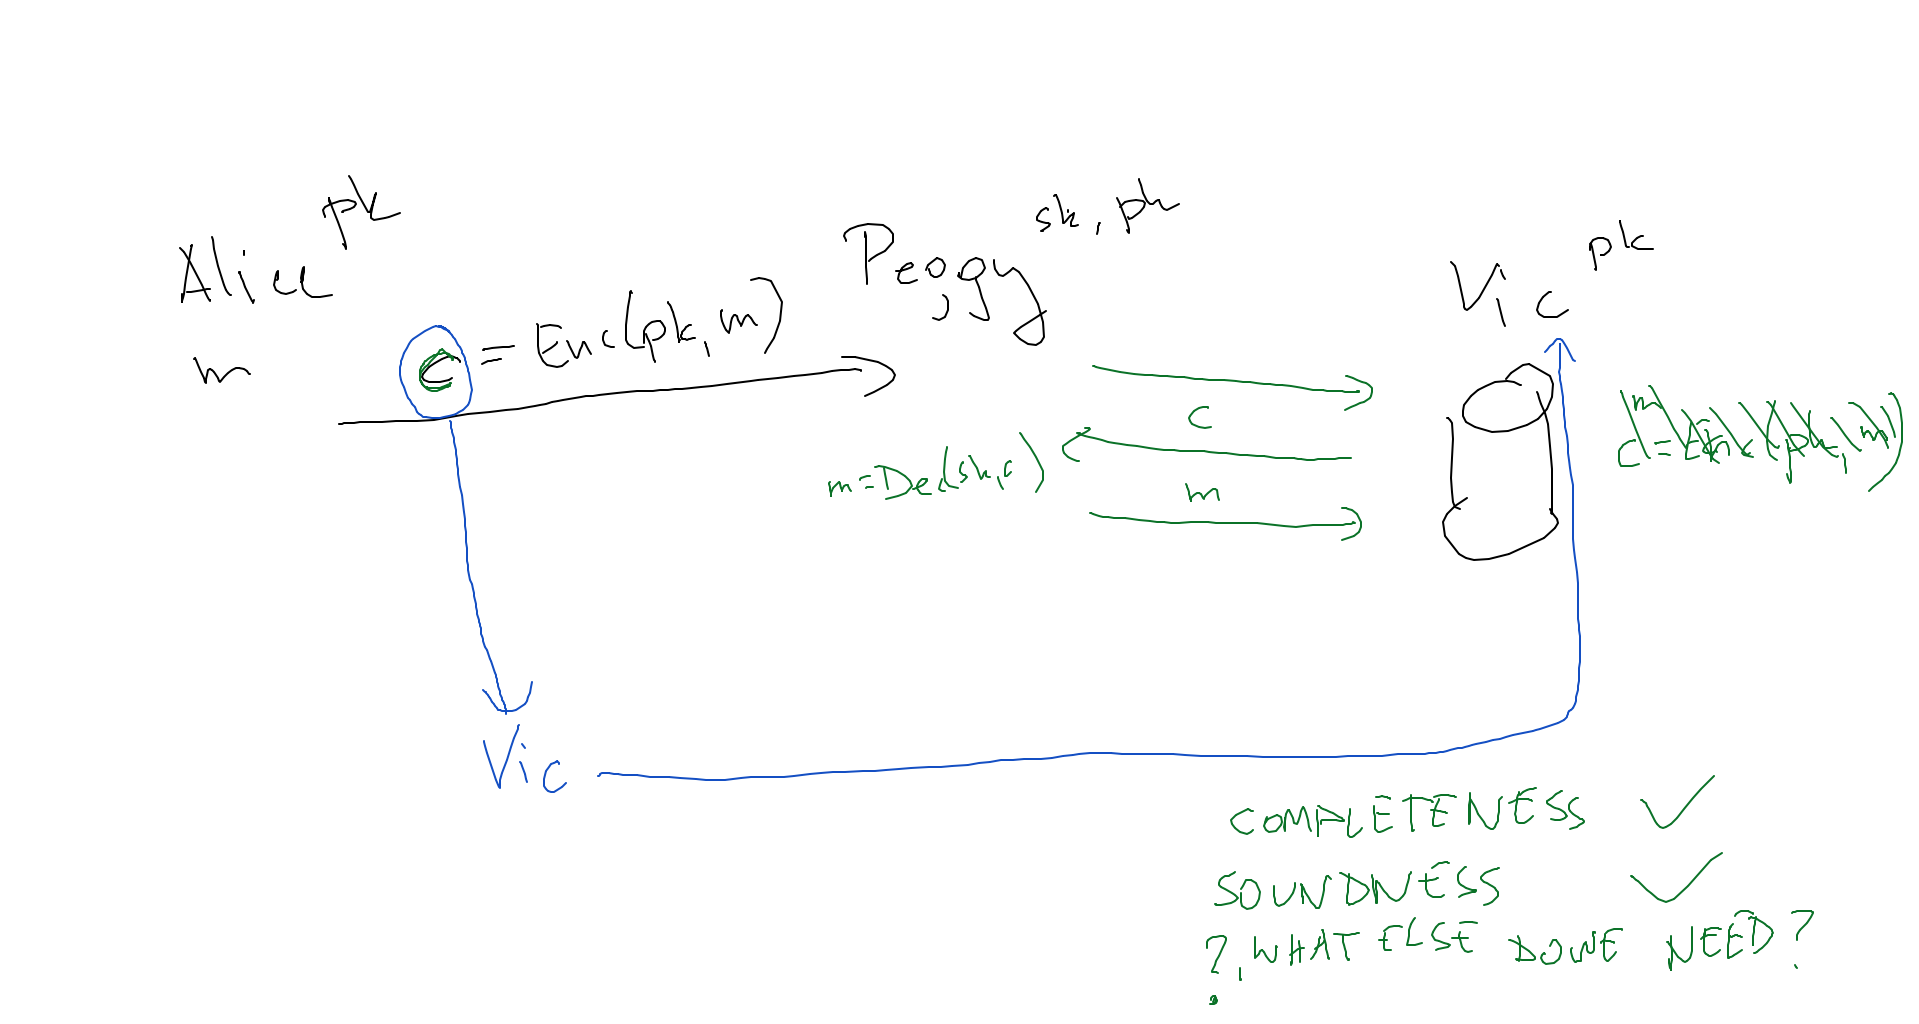 Alice pk
m
c = Enc(pk, m)
Peggy sk, pk
Vic pk
c
m = Dec(sk, c)
m
Vic
COMPLETENESS ✓
SOUNDNESS ✓
?, WHAT ELSE DO WE NEED?